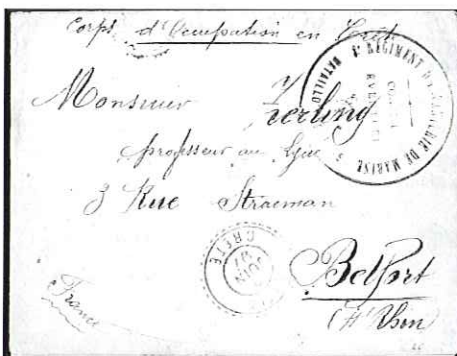 Corps d'Occupation en Crète
8e RÉGIMENT D'INFANTERIE DE MARINE
BATAILLON
Monsieur Zerling
professeur au Lycée
3 Rue Straeman
CRETE
JUIN
97
Belfort
(Ht Rhin)
France